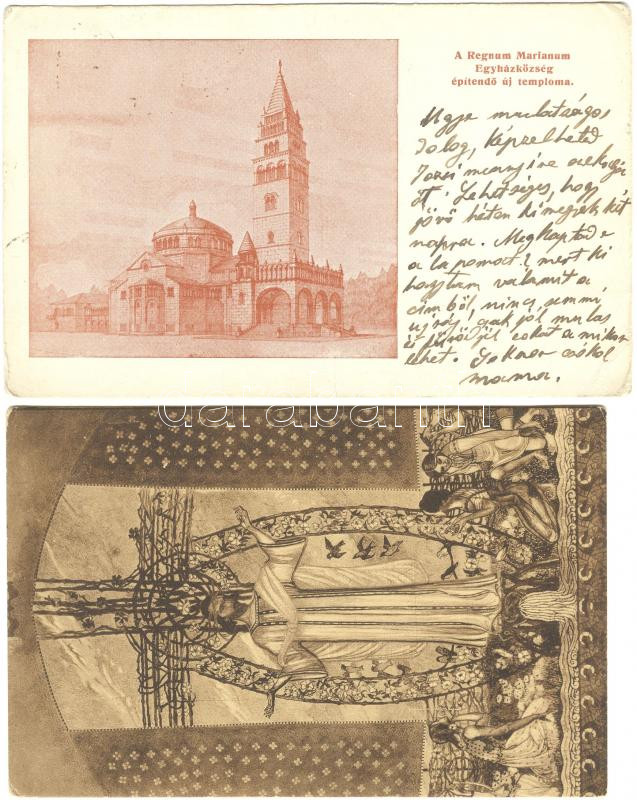 A Regnum Marianum
Egyházközség
építendő új temploma.
Ugye mulatságos
dolog, képzelheted
Józsi mennyire
itt! Lehetséges, hogy
jövő héten két
napra. Megkaptad e
a lapomat? mert ki
hagytam valamit a
címből, nincs semmi
ujság, csak jól mulass
és fürödjél sokat a mikor
lehet. Sokszor csókol
mama.
darabanth